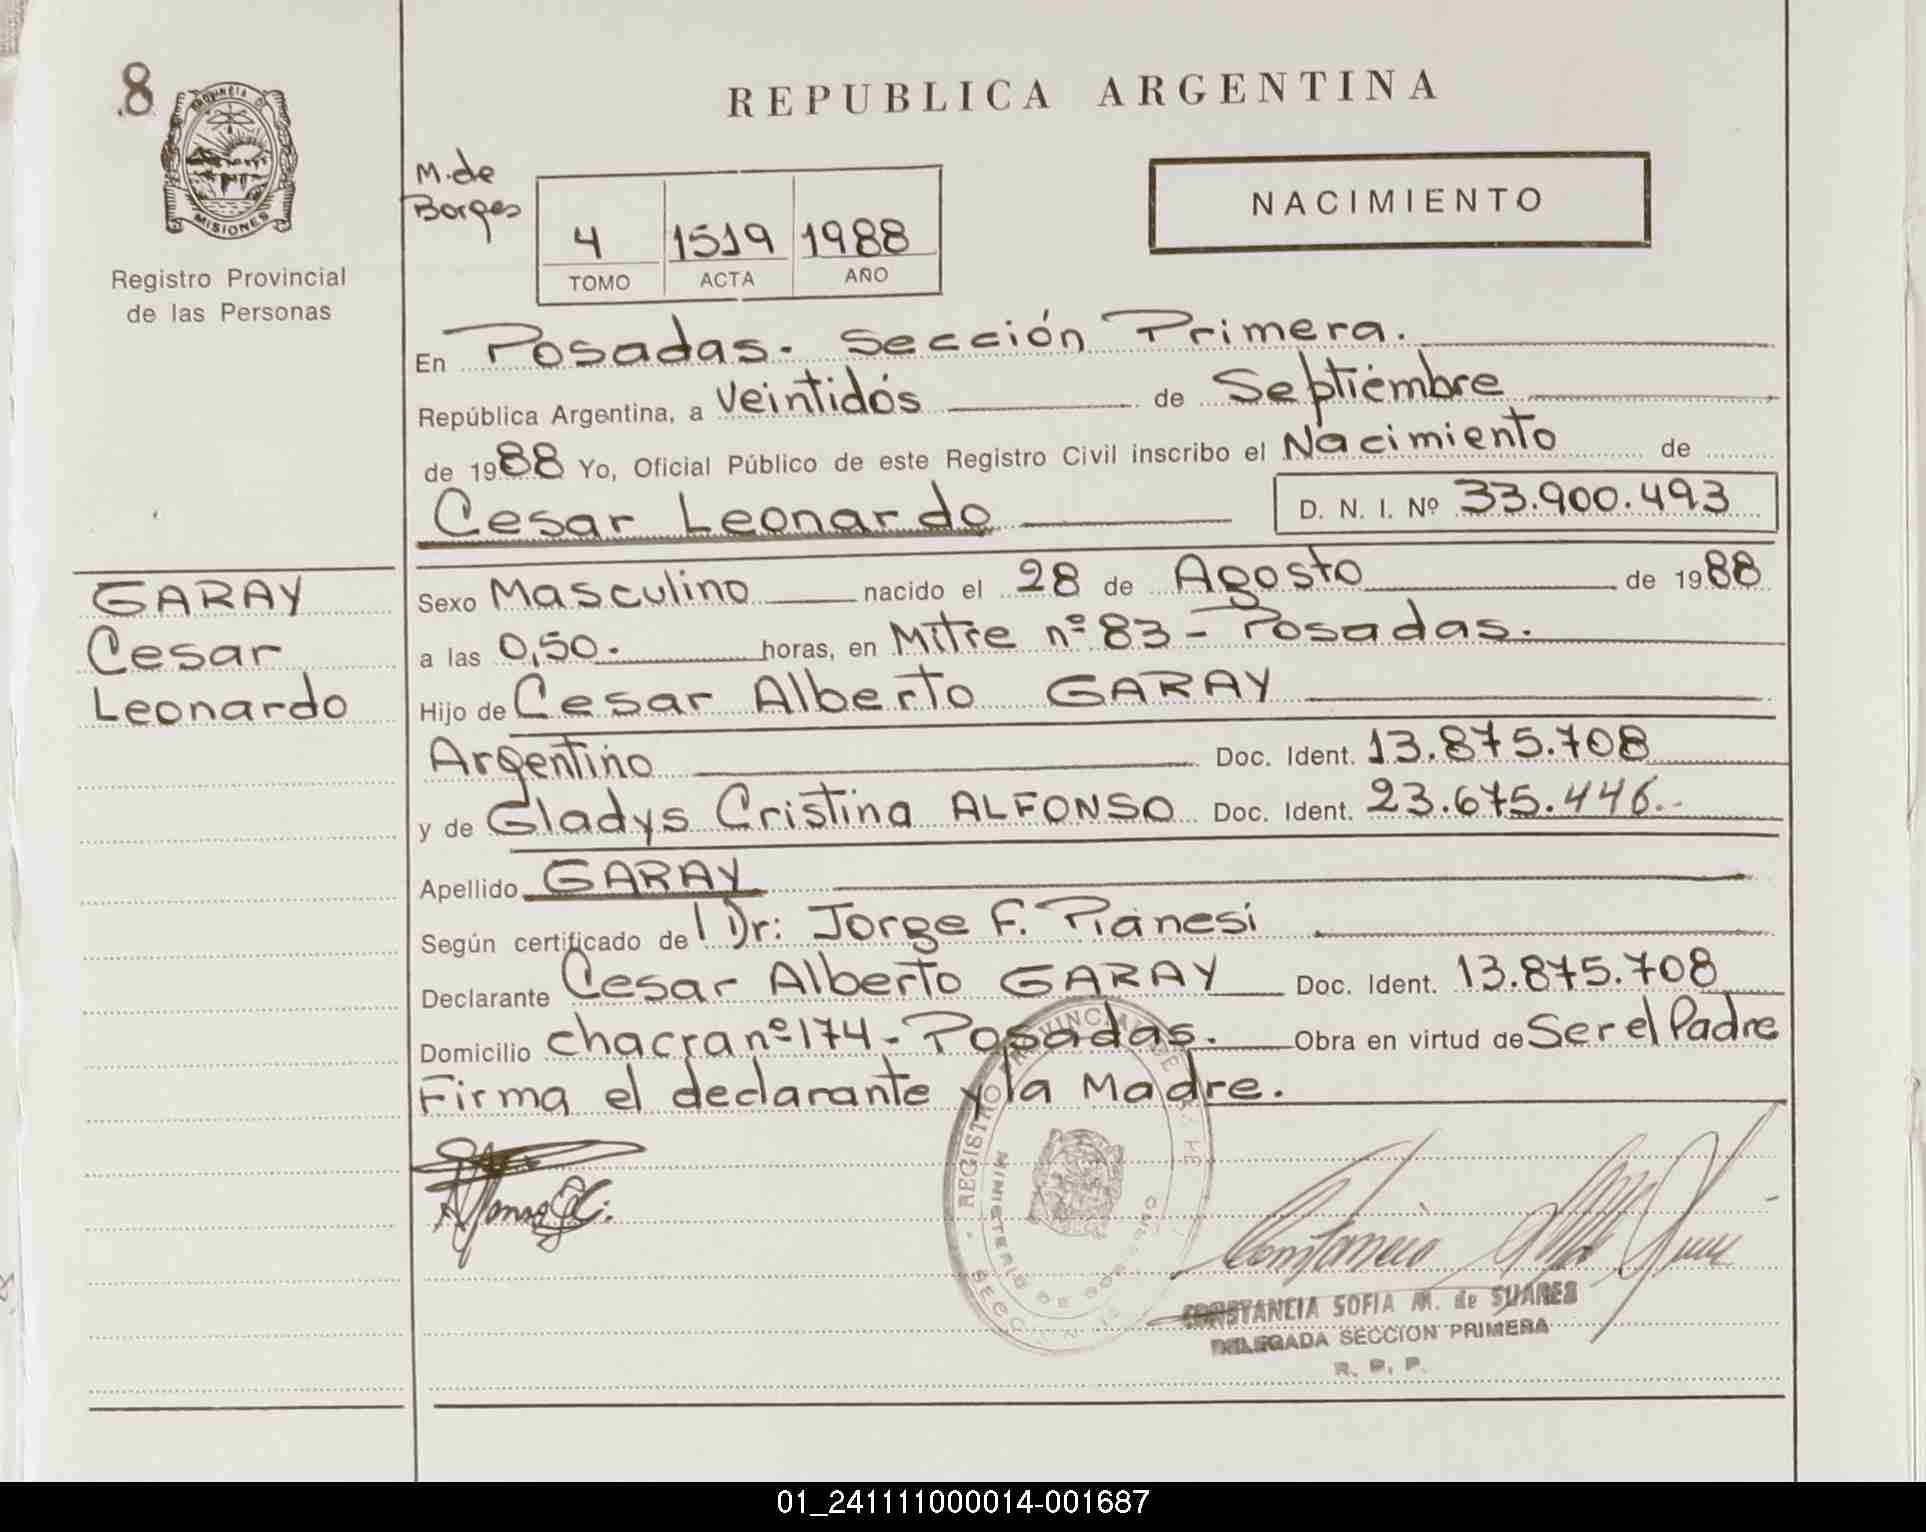 8
PROVINCIA D
MISIONES
Registro Provincial
de las Personas
REPUBLICA ARGENTINA
M. de
Borges
4 1519 1988
TOMO ACTA AÑO
NACIMIENTO
En Posadas. Sección Primera.
República Argentina, a Veintidós de Septiembre
de 1988 Yo, Oficial Público de este Registro Civil inscribo el Nacimiento de
Cesar Leonardo D. N. I. Nº 33.900.493
GARAY
Cesar
Leonardo
Sexo Masculino nacido el 28 de Agosto de 1988
a las 0,50. horas, en Mitre nº 83 - Posadas.
Hijo de Cesar Alberto GARAY
Argentino Doc. Ident. 13.875.708
y de Gladys Cristina ALFONSO Doc. Ident. 23.675.446.
Apellido GARAY
Según certificado de Dr: Jorge F. Pianesi
Declarante Cesar Alberto GARAY Doc. Ident. 13.875.708
Domicilio chacra nº 174 - Posadas. Obra en virtud de Ser el Padre
Firma el declarante y la Madre.
Alfonso G C.
REGISTRO PROVINCIAL DE
MINISTERIO DE GOBIERNO
CONSTANCIA SOFIA M. de SUARES
DELEGADA SECCION PRIMERA
R. P. P.
01_241111000014-001687